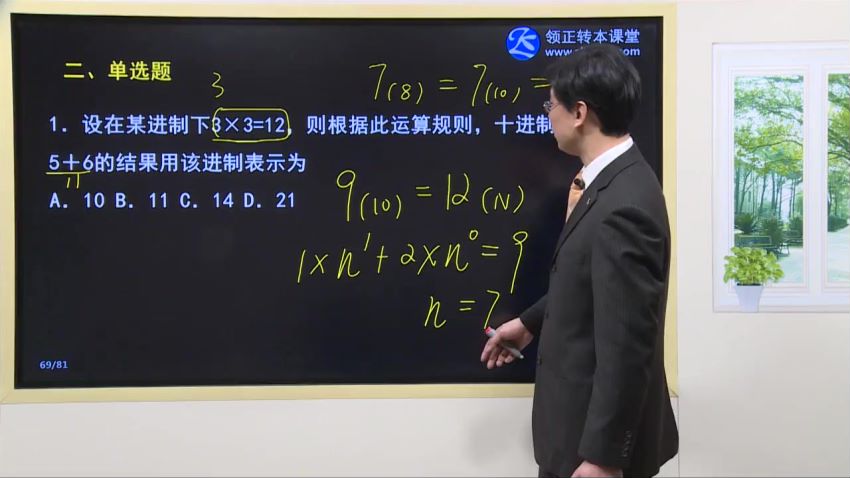 领正转本课堂
www
.com
二、单选题
3
7(8) = 7(10) =
1. 设在某进制下3×3=12, 则根据此运算规则, 十进制
5+6的结果用该进制表示为
11
A. 10 B. 11 C. 14 D. 21
9(10) = 12(N)
1×n¹+2×n⁰=9
n=7
69/81